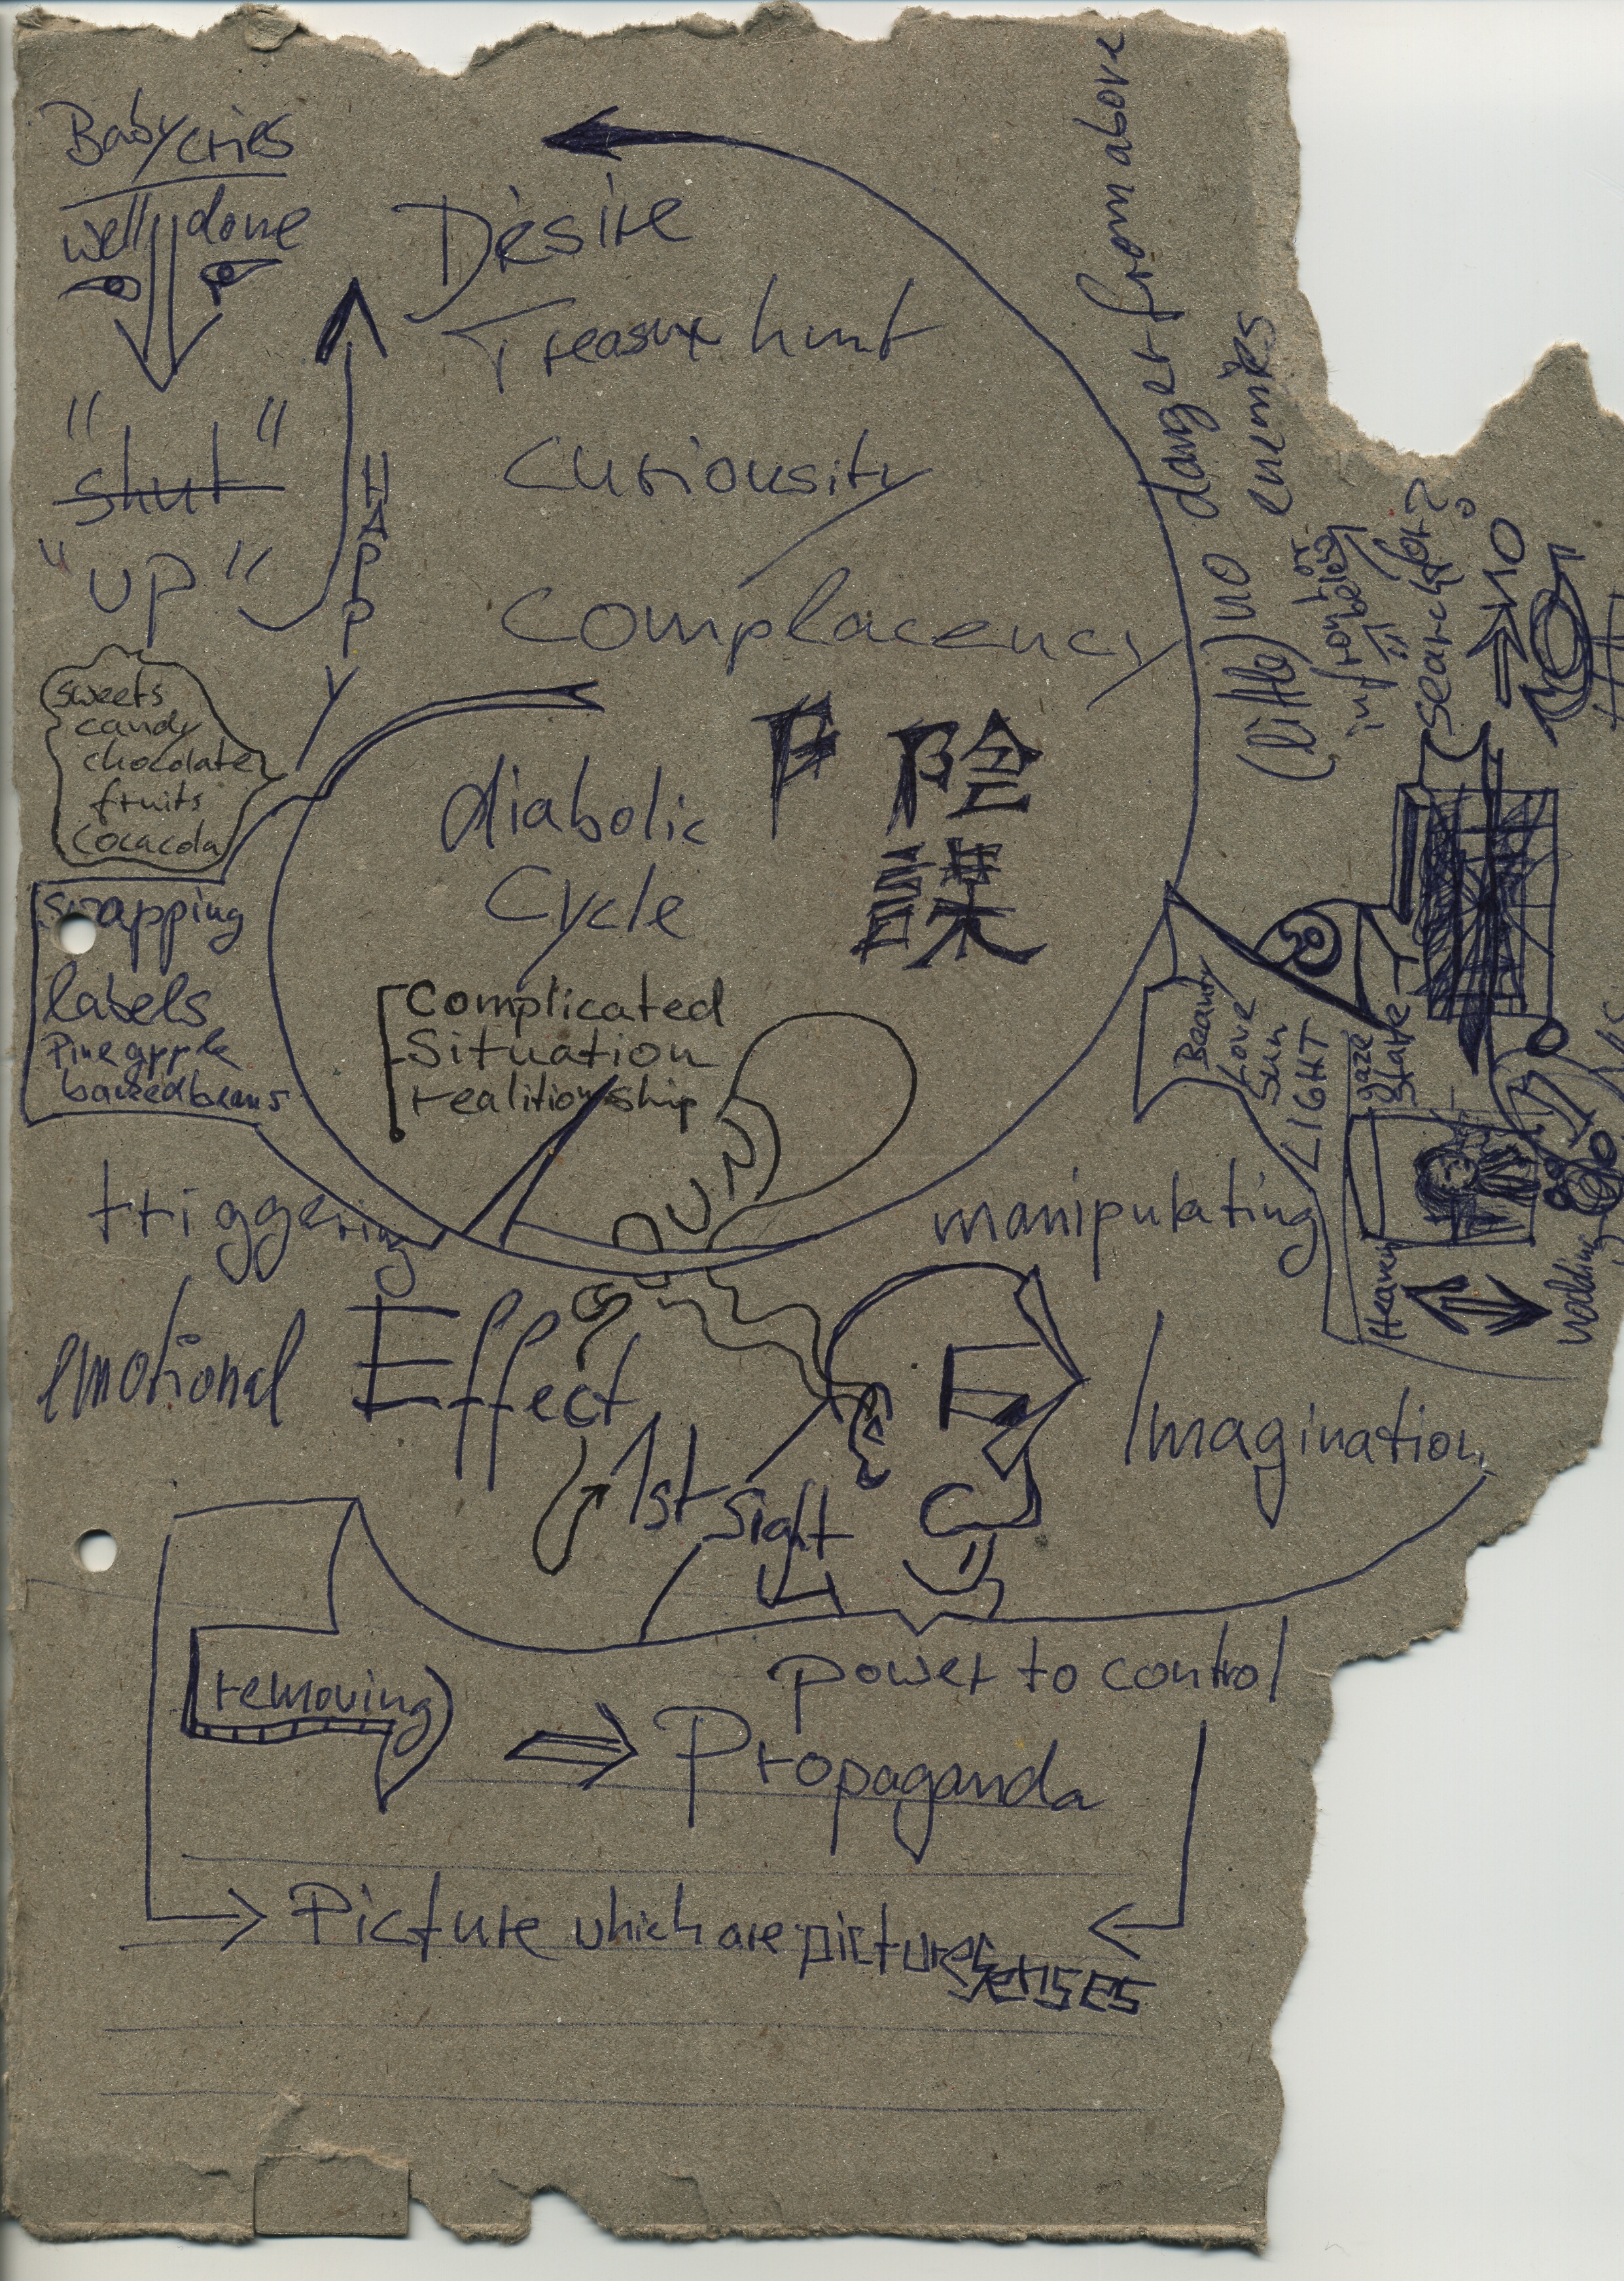 Baby cries
well done
"shut"
"up"
HAPPY
Desire
Treasure hunt
Curiousity
Complacency
diabolic
Cycle
陰
謀
Complicated
Situation
realitionship
RUN
sweets
candy
chocolate
fruits
cocacola
swapping
labels
Pineapple
bakedbeans
triggering
emotional Effect
1st Sight
manipulating
Imagination
(little) no danger from above
enemies
infront or
below
search for?
Beauty
Love
Sun
LIGHT
gaze
stare
Heaven
nodding
removing
power to control
Propaganda
Picture which are picture
senses